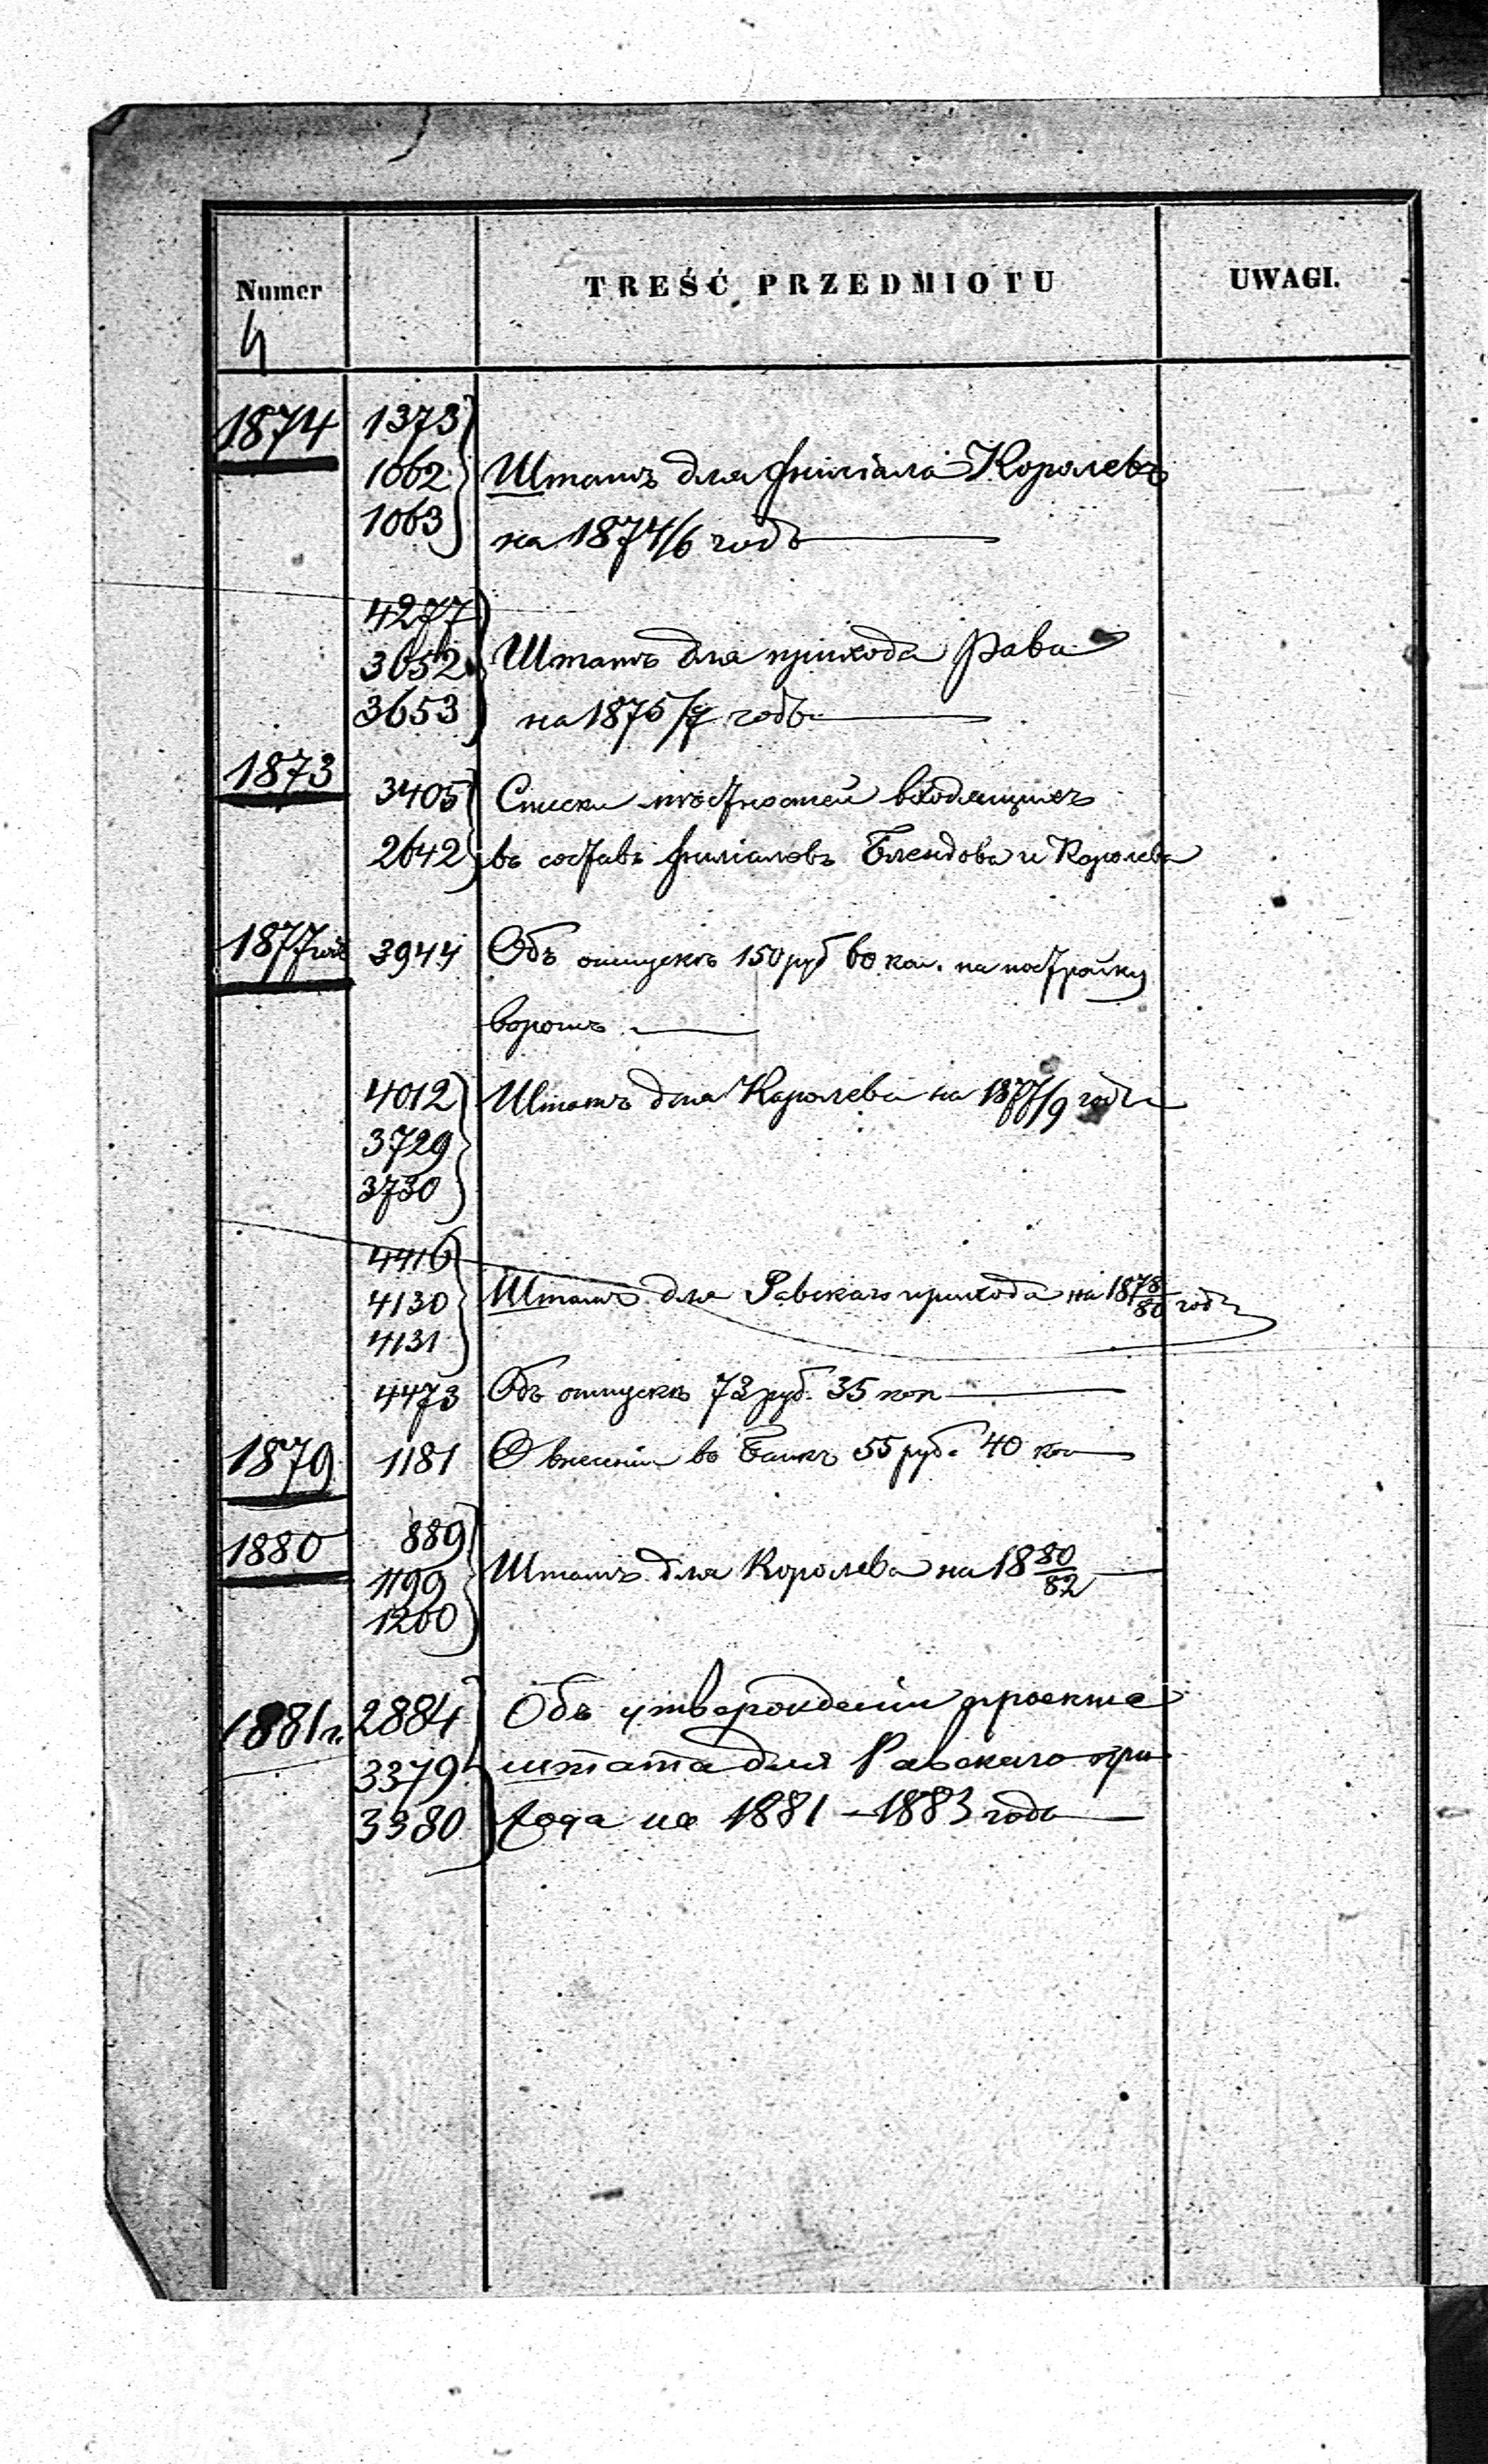 Numer TREŚĆ PRZEDMIOTU UWAGI.
4
1874 1373
1062 Штатъ для филіала Королевъ
1063 на 1874/6 годъ
4277
3652 Штатъ для прихода Рава
3653 на 1875/7 годъ
1873 3405 Списки мѣстностей входящихъ
2642 въ составъ филіаловъ Блендова и Королева
1877 годъ 3944 Объ отпускѣ 150 руб 60 коп. на постройку
воротъ
4012 Штатъ для Королева на 1877/9 годъ
3729
3730
4416
4130 Штатъ для Равскаго прихода на 1878/80 годъ
4131
4473 Объ отпускѣ 73 руб. 35 коп
1879 1181 О внесеніи въ Банкъ 55 руб. 40 коп
889
1880 1199 Штатъ для Королева на 1880/82
1200
1881 г. 2884 Объ утвержденіи проекта
3379 штата для Равскаго при
3380 хода на 1881 – 1883 годъ